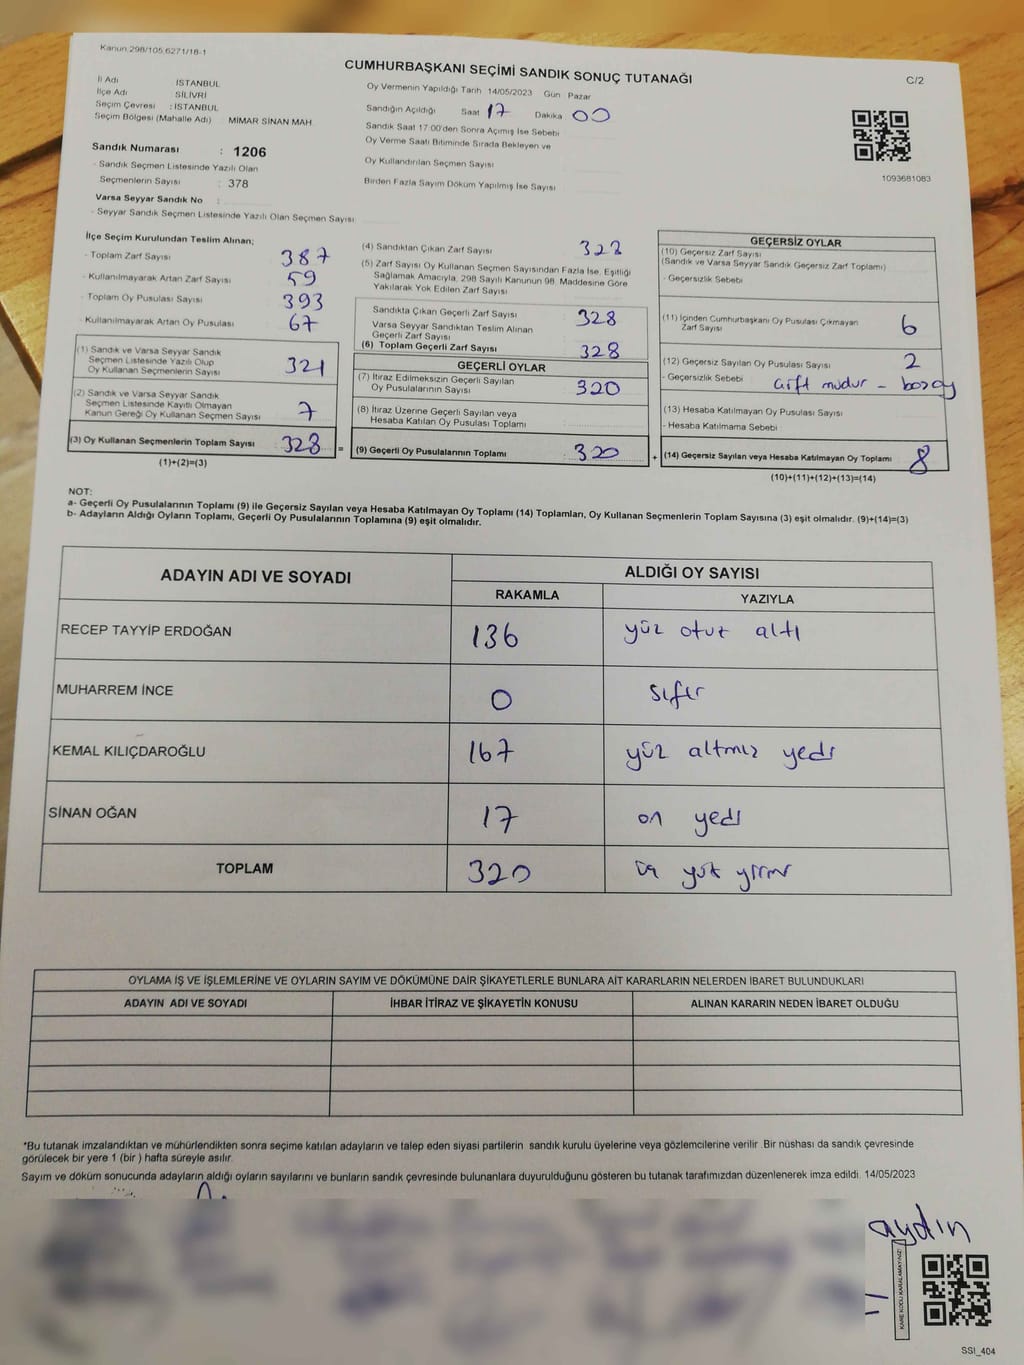 Kanun.298/105.6271/18-1
CUMHURBAŞKANI SEÇİMİ SANDIK SONUÇ TUTANAĞI
C/2
İl Adı İSTANBUL
İlçe Adı SİLİVRİ
Seçim Çevresi : İSTANBUL
Seçim Bölgesi (Mahalle Adı) MİMAR SİNAN MAH.
Oy Vermenin Yapıldığı Tarih 14/05/2023 Gün Pazar
Sandığın Açıldığı Saat 17 Dakika 00
Sandık Saat 17:00'den Sonra Açımış İse Sebebi
Oy Verme Saati Bitiminde Sırada Bekleyen ve
Oy Kullandırılan Seçmen Sayısı
Birden Fazla Sayım Döküm Yapılmış İse Sayısı
1093681083
Sandık Numarası : 1206
- Sandık Seçmen Listesinde Yazılı Olan
Seçmenlerin Sayısı : 378
Varsa Seyyar Sandık No :
- Seyyar Sandık Seçmen Listesinde Yazılı Olan Seçmen Sayısı
İlçe Seçim Kurulundan Teslim Alınan;
- Toplam Zarf Sayısı 387
- Kullanılmayarak Artan Zarf Sayısı 59
- Toplam Oy Pusulası Sayısı 393
- Kullanılmayarak Artan Oy Pusulası 67
(1) Sandık ve Varsa Seyyar Sandık
Seçmen Listesinde Yazılı Olup
Oy Kullanan Seçmenlerin Sayısı 321
(2) Sandık ve Varsa Seyyar Sandık
Seçmen Listesinde Kayıtlı Olmayan
Kanun Gereği Oy Kullanan Seçmen Sayısı 7
(3) Oy Kullanan Seçmenlerin Toplam Sayısı 328 =
(1)+(2)=(3)
(4) Sandıktan Çıkan Zarf Sayısı 328
(5) Zarf Sayısı Oy Kullanan Seçmen Sayısından Fazla İse, Eşitliği
Sağlamak Amacıyla, 298 Sayılı Kanunun 98. Maddesine Göre
Yakılarak Yok Edilen Zarf Sayısı
Sandıkta Çıkan Geçerli Zarf Sayısı 328
Varsa Seyyar Sandıktan Teslim Alınan
Geçerli Zarf Sayısı
(6) Toplam Geçerli Zarf Sayısı 328
GEÇERLİ OYLAR
(7) İtiraz Edilmeksizin Geçerli Sayılan
Oy Pusulalarının Sayısı 320
(8) İtiraz Üzerine Geçerli Sayılan veya
Hesaba Katılan Oy Pusulası Toplamı
(9) Geçerli Oy Pusulalarının Toplamı 320 +
GEÇERSİZ OYLAR
(10) Geçersiz Zarf Sayısı
(Sandık ve Varsa Seyyar Sandık Geçersiz Zarf Toplamı)
- Geçersizlik Sebebi
(11) İçinden Cumhurbaşkanı Oy Pusulası Çıkmayan
Zarf Sayısı 6
(12) Geçersiz Sayılan Oy Pusulası Sayısı 2
- Geçersizlik Sebebi çift mudur -
(13) Hesaba Katılmayan Oy Pusulası Sayısı
- Hesaba Katılmama Sebebi
(14) Geçersiz Sayılan veya Hesaba Katılmayan Oy Toplamı 8
(10)+(11)+(12)+(13)=(14)
NOT:
a- Geçerli Oy Pusulalarının Toplamı (9) ile Geçersiz Sayılan veya Hesaba Katılmayan Oy Toplamı (14) Toplamları, Oy Kullanan Seçmenlerin Toplam Sayısına (3) eşit olmalıdır. (9)+(14)=(3)
b- Adayların Aldığı Oyların Toplamı, Geçerli Oy Pusulalarının Toplamına (9) eşit olmalıdır.
ADAYIN ADI VE SOYADI ALDIĞI OY SAYISI
RAKAMLA YAZIYLA
RECEP TAYYİP ERDOĞAN 136 yüz otuz altı
MUHARREM İNCE 0 sıfır
KEMAL KILIÇDAROĞLU 167 yüz altmız yedi
SİNAN OĞAN 17 on yedi
TOPLAM 320 üç yüz yirmi
OYLAMA İŞ VE İŞLEMLERİNE VE OYLARIN SAYIM VE DÖKÜMÜNE DAİR ŞİKAYETLERLE BUNLARA AİT KARARLARIN NELERDEN İBARET BULUNDUKLARI
ADAYIN ADI VE SOYADI İHBAR İTİRAZ VE ŞİKAYETİN KONUSU ALINAN KARARIN NEDEN İBARET OLDUĞU
*Bu tutanak imzalandıktan ve mühürlendikten sonra seçime katılan adayların ve talep eden siyasi partilerin sandık kurulu üyelerine veya gözlemcilerine verilir. Bir nüshası da sandık çevresinde
görülecek bir yere 1 (bir ) hafta süreyle asılır.
Sayım ve döküm sonucunda adayların aldığı oyların sayılarını ve bunların sandık çevresinde bulunanlara duyurulduğunu gösteren bu tutanak tarafımızdan düzenlenerek imza edildi. 14/05/2023
aydın
KARE KODU KARALAMAYINIZ!
SSI_404